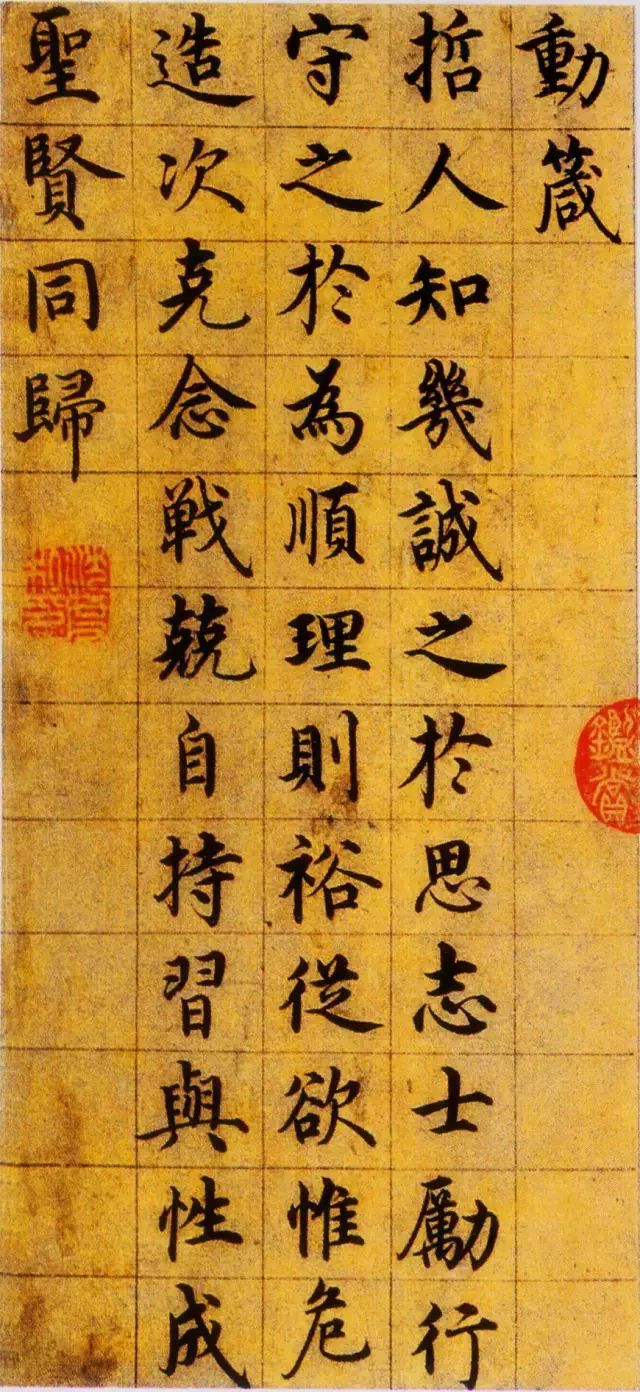 動箴
哲人知幾誠之於思志士勵行
守之於為順理則裕從欲惟危
造次克念戰兢自持習與性成
聖賢同歸
鑑賞